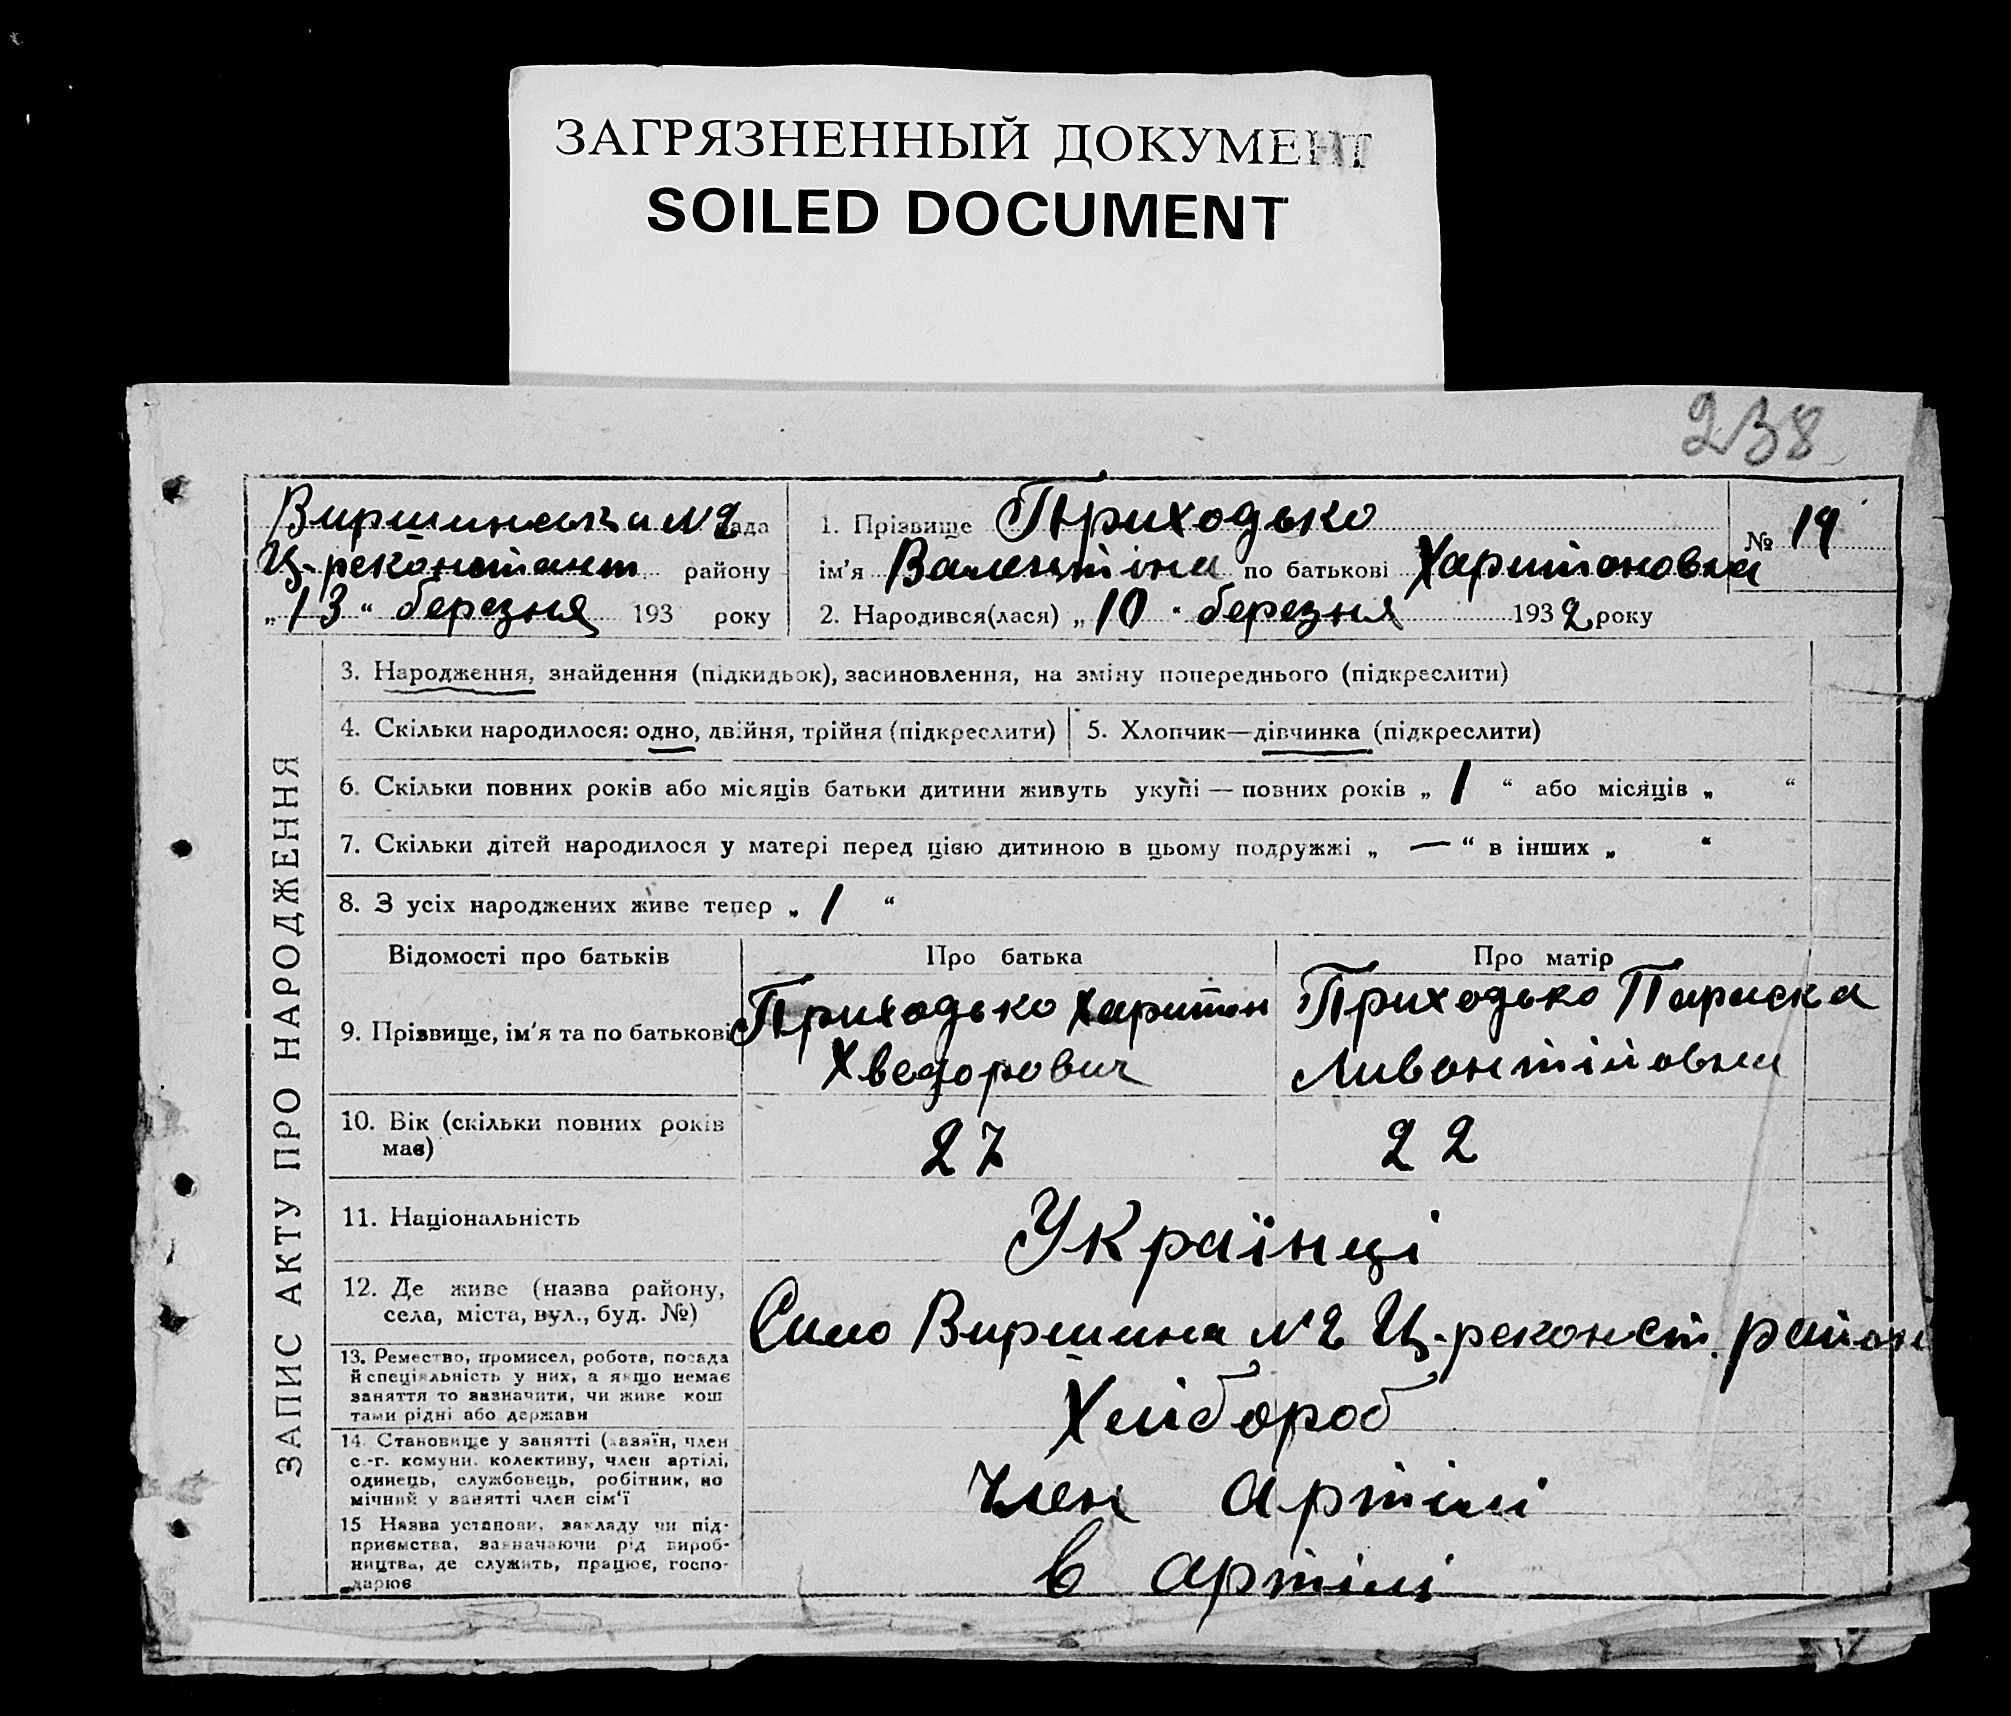 ЗАГРЯЗНЕННЫЙ ДОКУМЕНТ
SOILED DOCUMENT
238
Виршинська №2 рада
Ц-реконстант району
„13“ березня 193 року
1. Прізвище Приходько
ім'я Валентіна по батькові Харитоновна
2. Народився(лася) „10“ березня 1932 року
№ 19
ЗАПИС АКТУ ПРО НАРОДЖЕННЯ
3. Народження, знайдення (підкидьок), засиновлення, на зміну попереднього (підкреслити)
4. Скільки народилося: одно, двійня, трійня (підкреслити)
5. Хлопчик—дівчинка (підкреслити)
6. Скільки повних років або місяців батьки дитини живуть укупі — повних років „ 1 “ або місяців „ “
7. Скільки дітей народилося у матері перед цією дитиною в цьому подружжі „ — “ в інших „ “
8. З усіх народжених живе тепер „ 1 “
Відомості про батьків
Про батька
Про матір
9. Прізвище, ім'я та по батькові
Приходько Харитон
Хведорович
Приходько Париска
Ливонтійовна
10. Вік (скільки повних років
має)
27
22
11. Національність
Українці
12. Де живе (назва району,
села, міста, вул., буд. №)
Село Виршина №2 Ц-реконст. район
13. Ремество, промисел, робота, посада
й спеціяльність у них, а якщо немає
заняття то зазначити, чи живе кош
тами рідні або держави
Хлібороб
14. Становище у занятті (хазяїн, член
с.-г. комуни, колективу, член артілі,
одинець, службовець, робітник, по
мічний у занятті член сім'ї
Член артілі
15 Назва установи, закладу чи під-
приємства, зазначаючи рід вироб-
ництва, де служить, працює, госпо-
дарює
в артілі